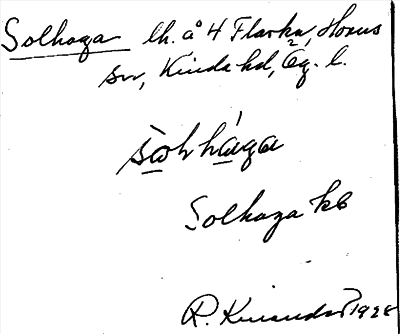 Solhaga lh. å 4 Flarka, Horns
sn, Kinda hd, Ög. l.
sωḷhāga
Solhaga kb
R. 1928